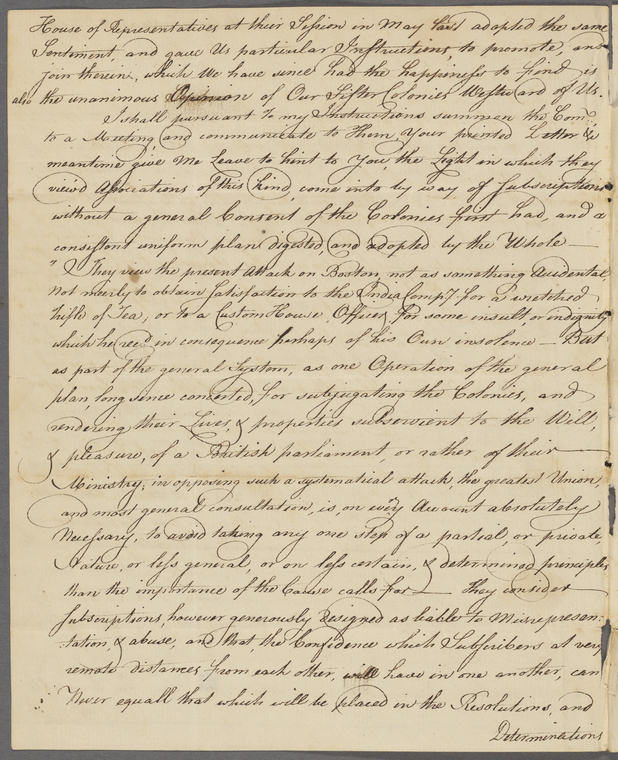 House of Representatives at their Session in May last adopted the same
Sentiment, and gave Us particular Instructions, to promote, and
join therein, which We have since had the happiness to find is
also the unanimous Opinion of Our Sister Colonies Westward of Us.
I shall pursuant to my Instructions summon the Com:
to a Meeting, and communicate to them Your printed Letter &
meantime give Me leave to hint to You, the Light in which they
view'd Associations of this kind, come into by way of Subscriptions
without a general Consent of the Colonies first had, and a
consistent uniform plan digested, and adopted by the Whole —
" They view the present Attack on Boston, not as something Accidental,
not merely to obtain Satisfaction to the India Comp.y for a wretched
trifle of Tea, or to a Custom House Officer for some insult, or indignity
which he rec'd in consequence perhaps of his Own insolence — But
as part of the general System, as one Operation of the general
plan, long since concerted, for subjugating the Colonies, and
rendering their Lives, & properties subservient to the Will,
& pleasure, of a British parliament, or rather of their
Ministry; in opposing such a systematical attack, the greatest Union,
and most general consultation, is, on every Account absolutely
Necessary, to avoid taking any one step of a partial, or private,
Nature, or less general, or on less certain, & determined principles
than the importance of the Cause calls for — they consider
Subscriptions, however generously designed as liable to Misrepresen-
tation, & abuse, and that the Confidence which Subscribers at very
remote distances from each other, will have in one another, can
Never equall that which will be placed in the Resolutions, and
Determinations